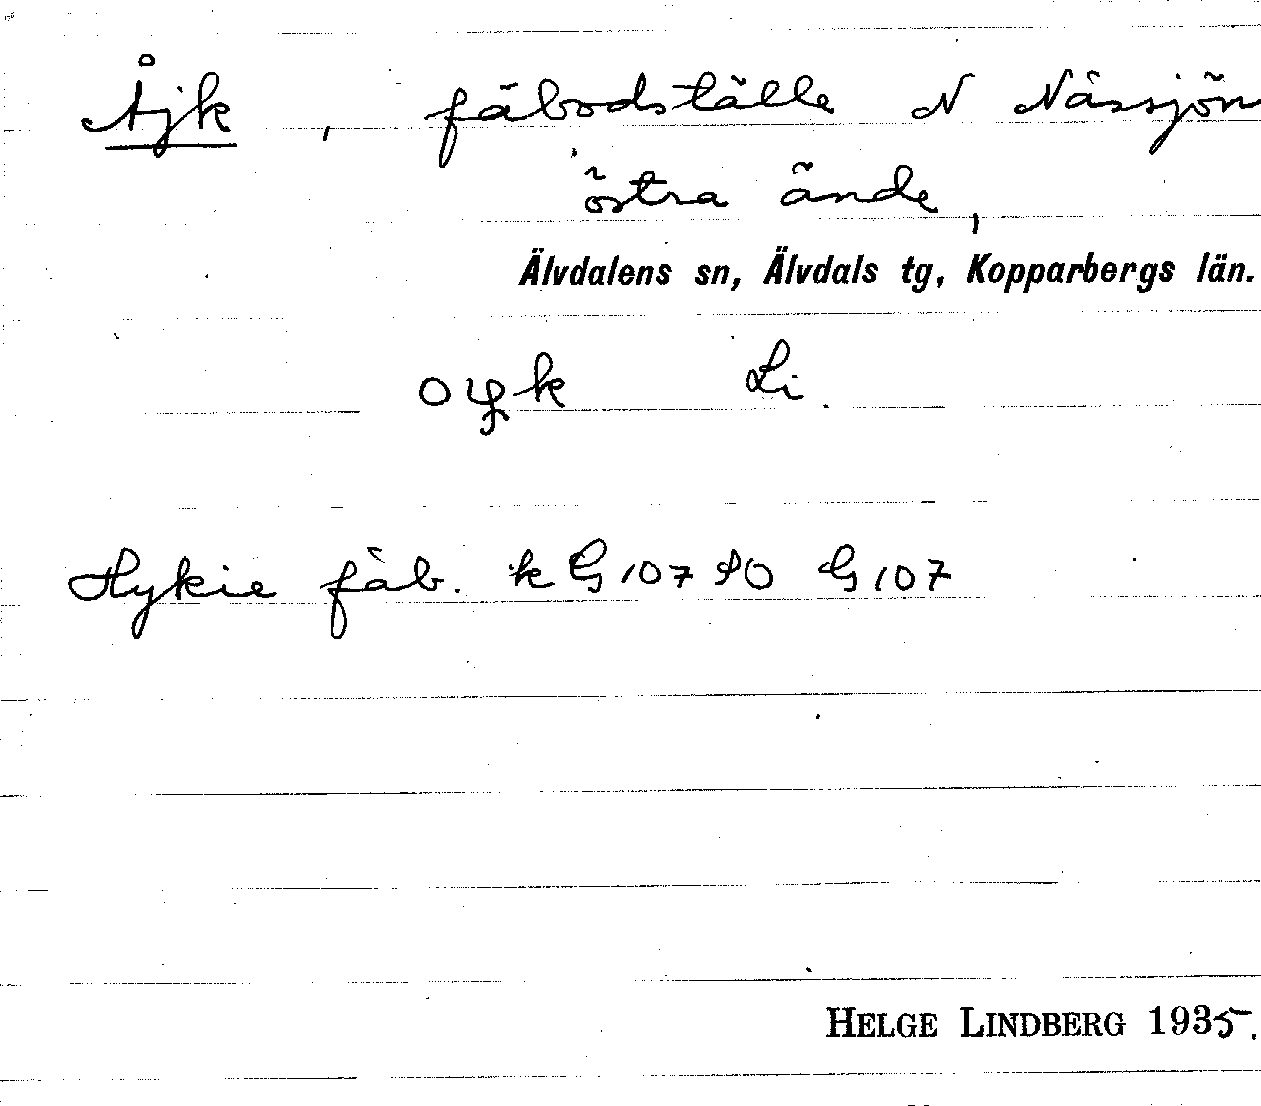 Åjk, fäbodställe N Nässjön
östra ände,
Älvdalens sn, Älvdals tg, Kopparbergs län.
Li
Hykie fäb. k G 107 SO G 107
HELGE LINDBERG 1935.